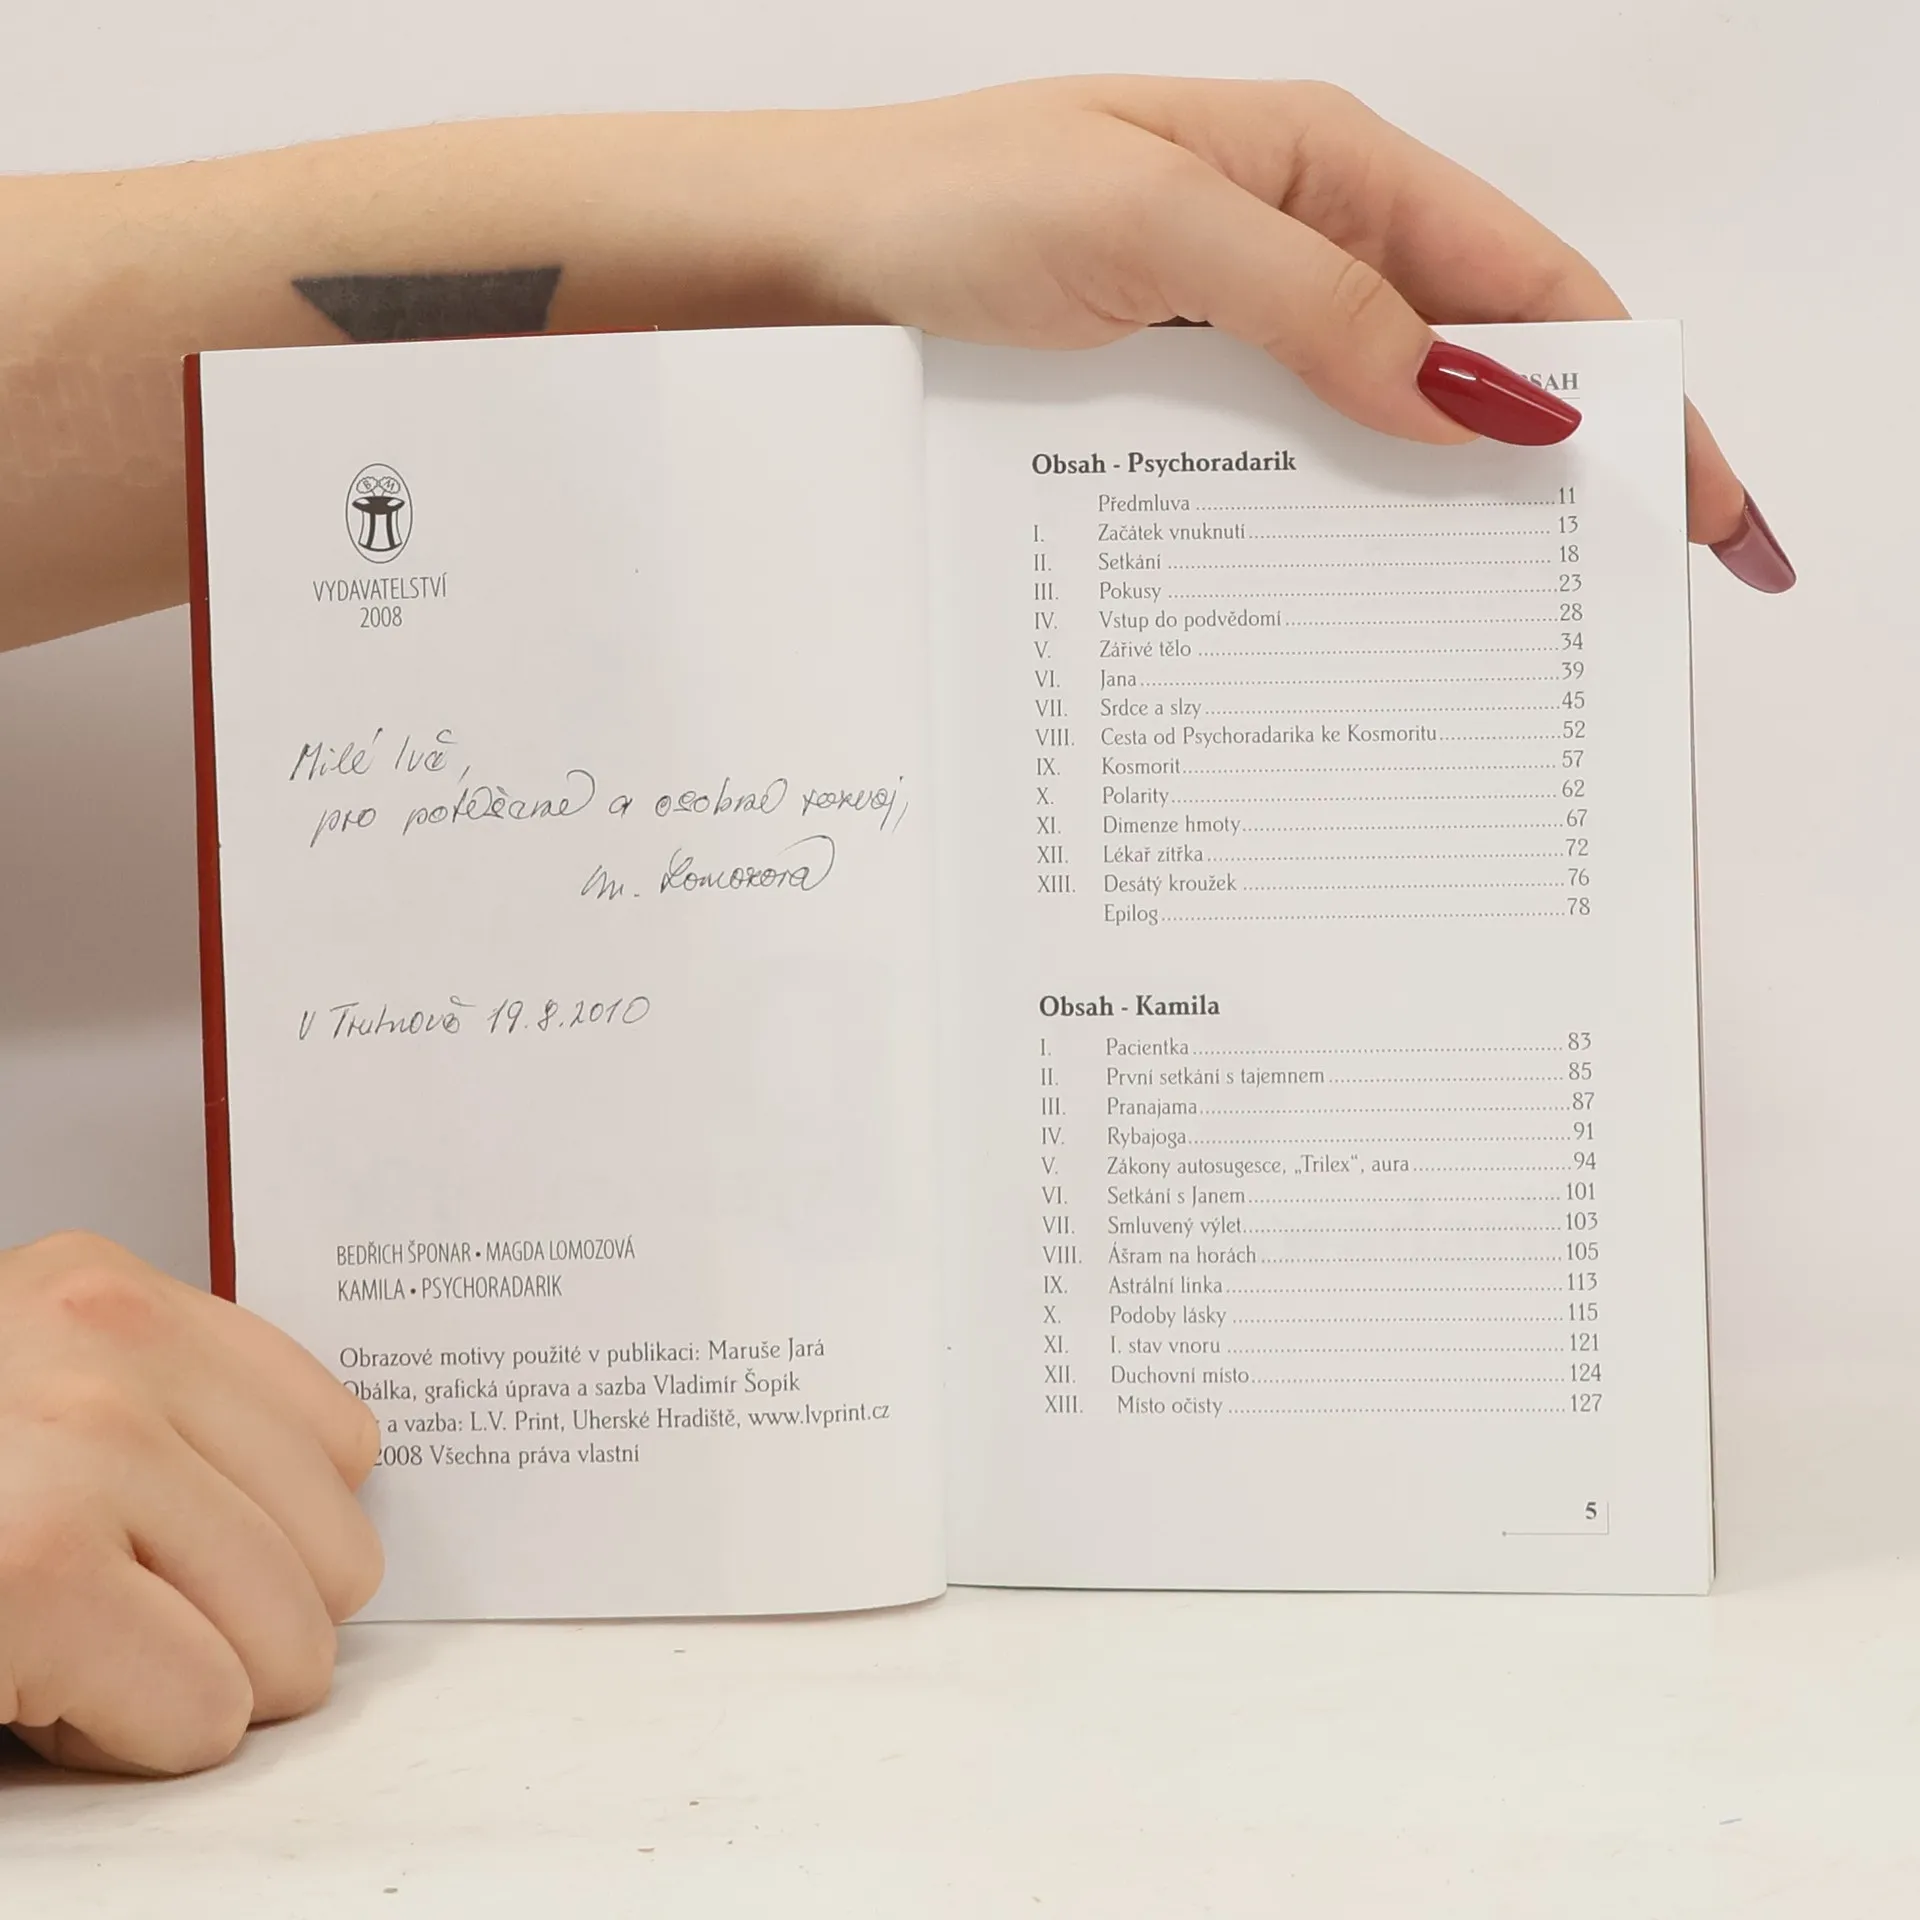 B M
VYDAVATELSTVÍ
2008
Milé Ivě,
pro potěšení a osobní rozvoj,
M. Lomozová
V Trutnově 19.8.2010
BEDŘICH ŠPONAR • MAGDA LOMOZOVÁ
KAMILA • PSYCHORADARIK
Obrazové motivy použité v publikaci: Maruše Jará
Obálka, grafická úprava a sazba Vladimír Šopík
a vazba: L.V. Print, Uherské Hradiště, www.lvprint.cz
2008 Všechna práva vlastní
Obsah - Psychoradarik
Předmluva 11
I. Začátek vnuknutí 13
II. Setkání 18
III. Pokusy 23
IV. Vstup do podvědomí 28
V. Zářivé tělo 34
VI. Jana 39
VII. Srdce a slzy 45
VIII. Cesta od Psychoradarika ke Kosmoritu 52
IX. Kosmorit 57
X. Polarity 62
XI. Dimenze hmoty 67
XII. Lékař zítřka 72
XIII. Desátý kroužek 76
Epilog 78
Obsah - Kamila
I. Pacientka 83
II. První setkání s tajemnem 85
III. Pranajama 87
IV. Rybajoga 91
V. Zákony autosugesce, „Trilex“, aura 94
VI. Setkání s Janem 101
VII. Smluvený výlet 103
VIII. Ášram na horách 105
IX. Astrální linka 113
X. Podoby lásky 115
XI. I. stav vnoru 121
XII. Duchovní místo 124
XIII. Místo očisty 127
5